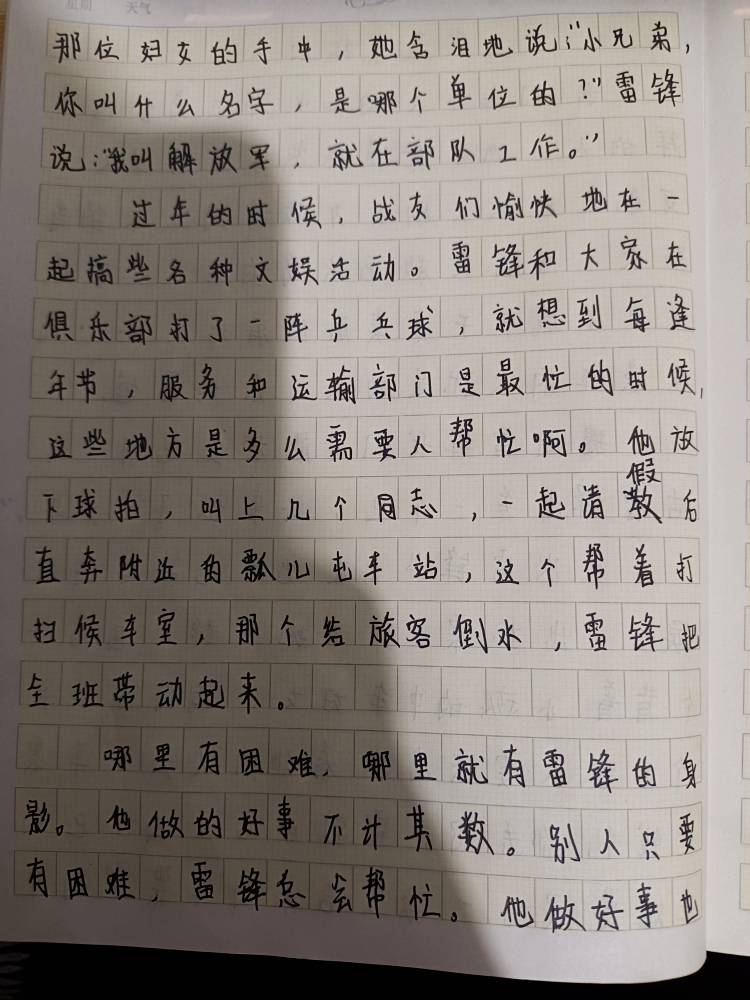 星期 天气
那位妇女的手中，她含泪地说：“小兄弟，
你叫什么名字，是哪个单位的？”雷锋
说：“我叫解放军，就在部队工作。”
过年的时候，战友们愉快地在一
起搞些名种文娱活动。雷锋和大家在
俱乐部打了一阵乒乓球，就想到每逢
年节，服务和运输部门是最忙的时候，
这些地方是多么需要人帮忙啊。他放
下球拍，叫上几个同志，一起请假后
直奔附近的瓢儿屯车站，这个帮着打
扫候车室，那个给旅客倒水，雷锋把
全班带动起来。
哪里有困难，哪里就有雷锋的身
影。他做的好事不计其数。别人只要
有困难，雷锋总会帮忙。他做好事也